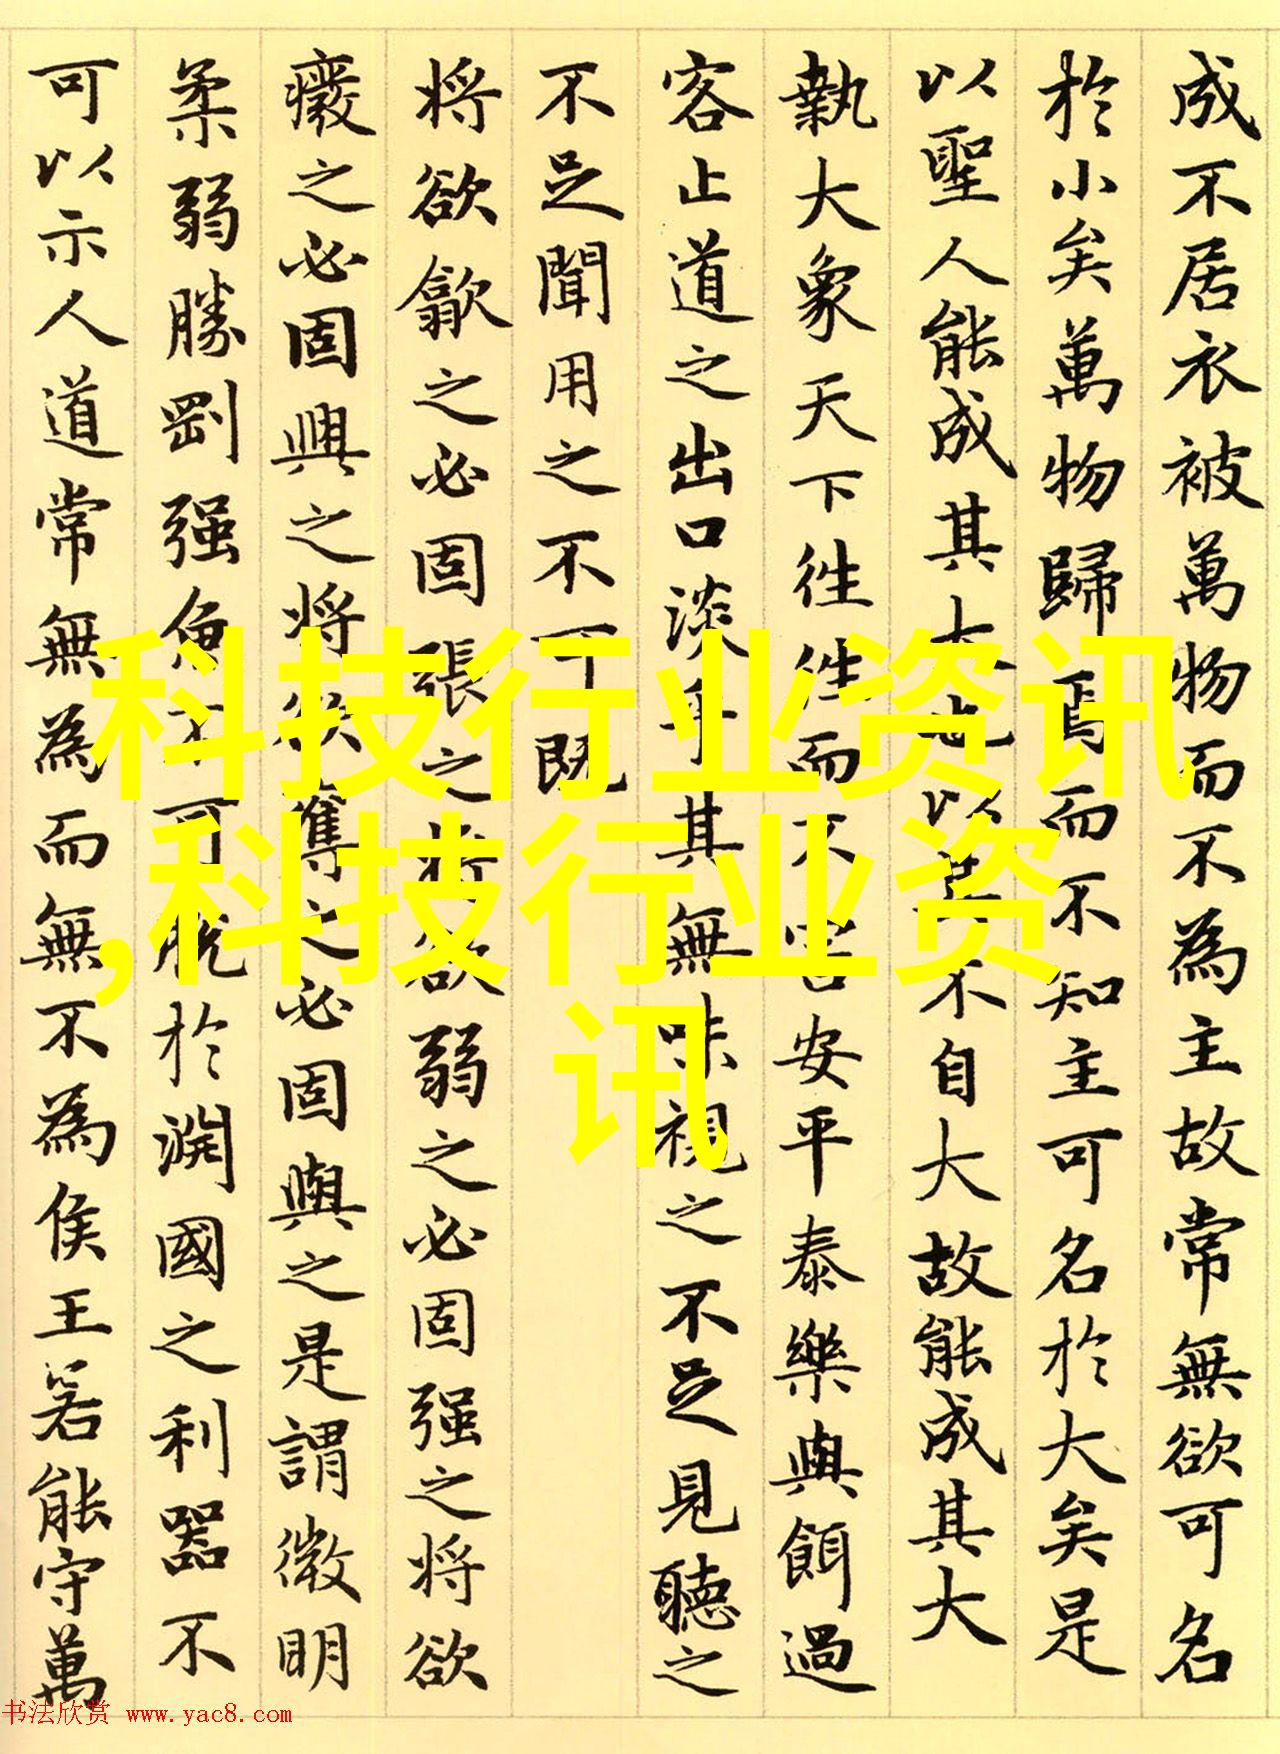 成不居衣被萬物而不為主故常無欲可名
於小矣萬物歸焉而不知主可名於大矣是
以聖人能成其大也以其不自大故能成其大
執大象天下往往而不害安平泰樂與餌過
客止道之出口淡乎其無味視之不足見聽之
不足聞用之不可既
将欲歙之必固張之将欲弱之必固强之将欲
癈之必固興之将欲奪之必固與之是謂微明
柔弱勝剛强魚不可脱於淵國之利器不
可以示人道常無為而無不為侯王若能守萬
科技行业资讯
,科技行业资
讯
书法欣赏 www.yac8.com